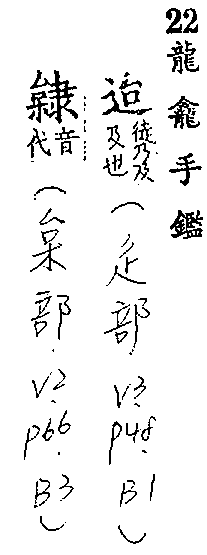 22 龍龕手鑑
迨 徒乃反及也(辵部.V3.P48.B1)
音代(部.V2.P66.B3)